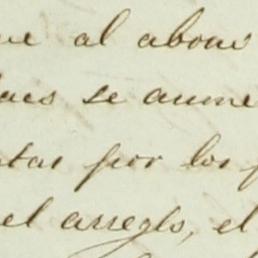 al abono
se aume
por los
el arreglo, el